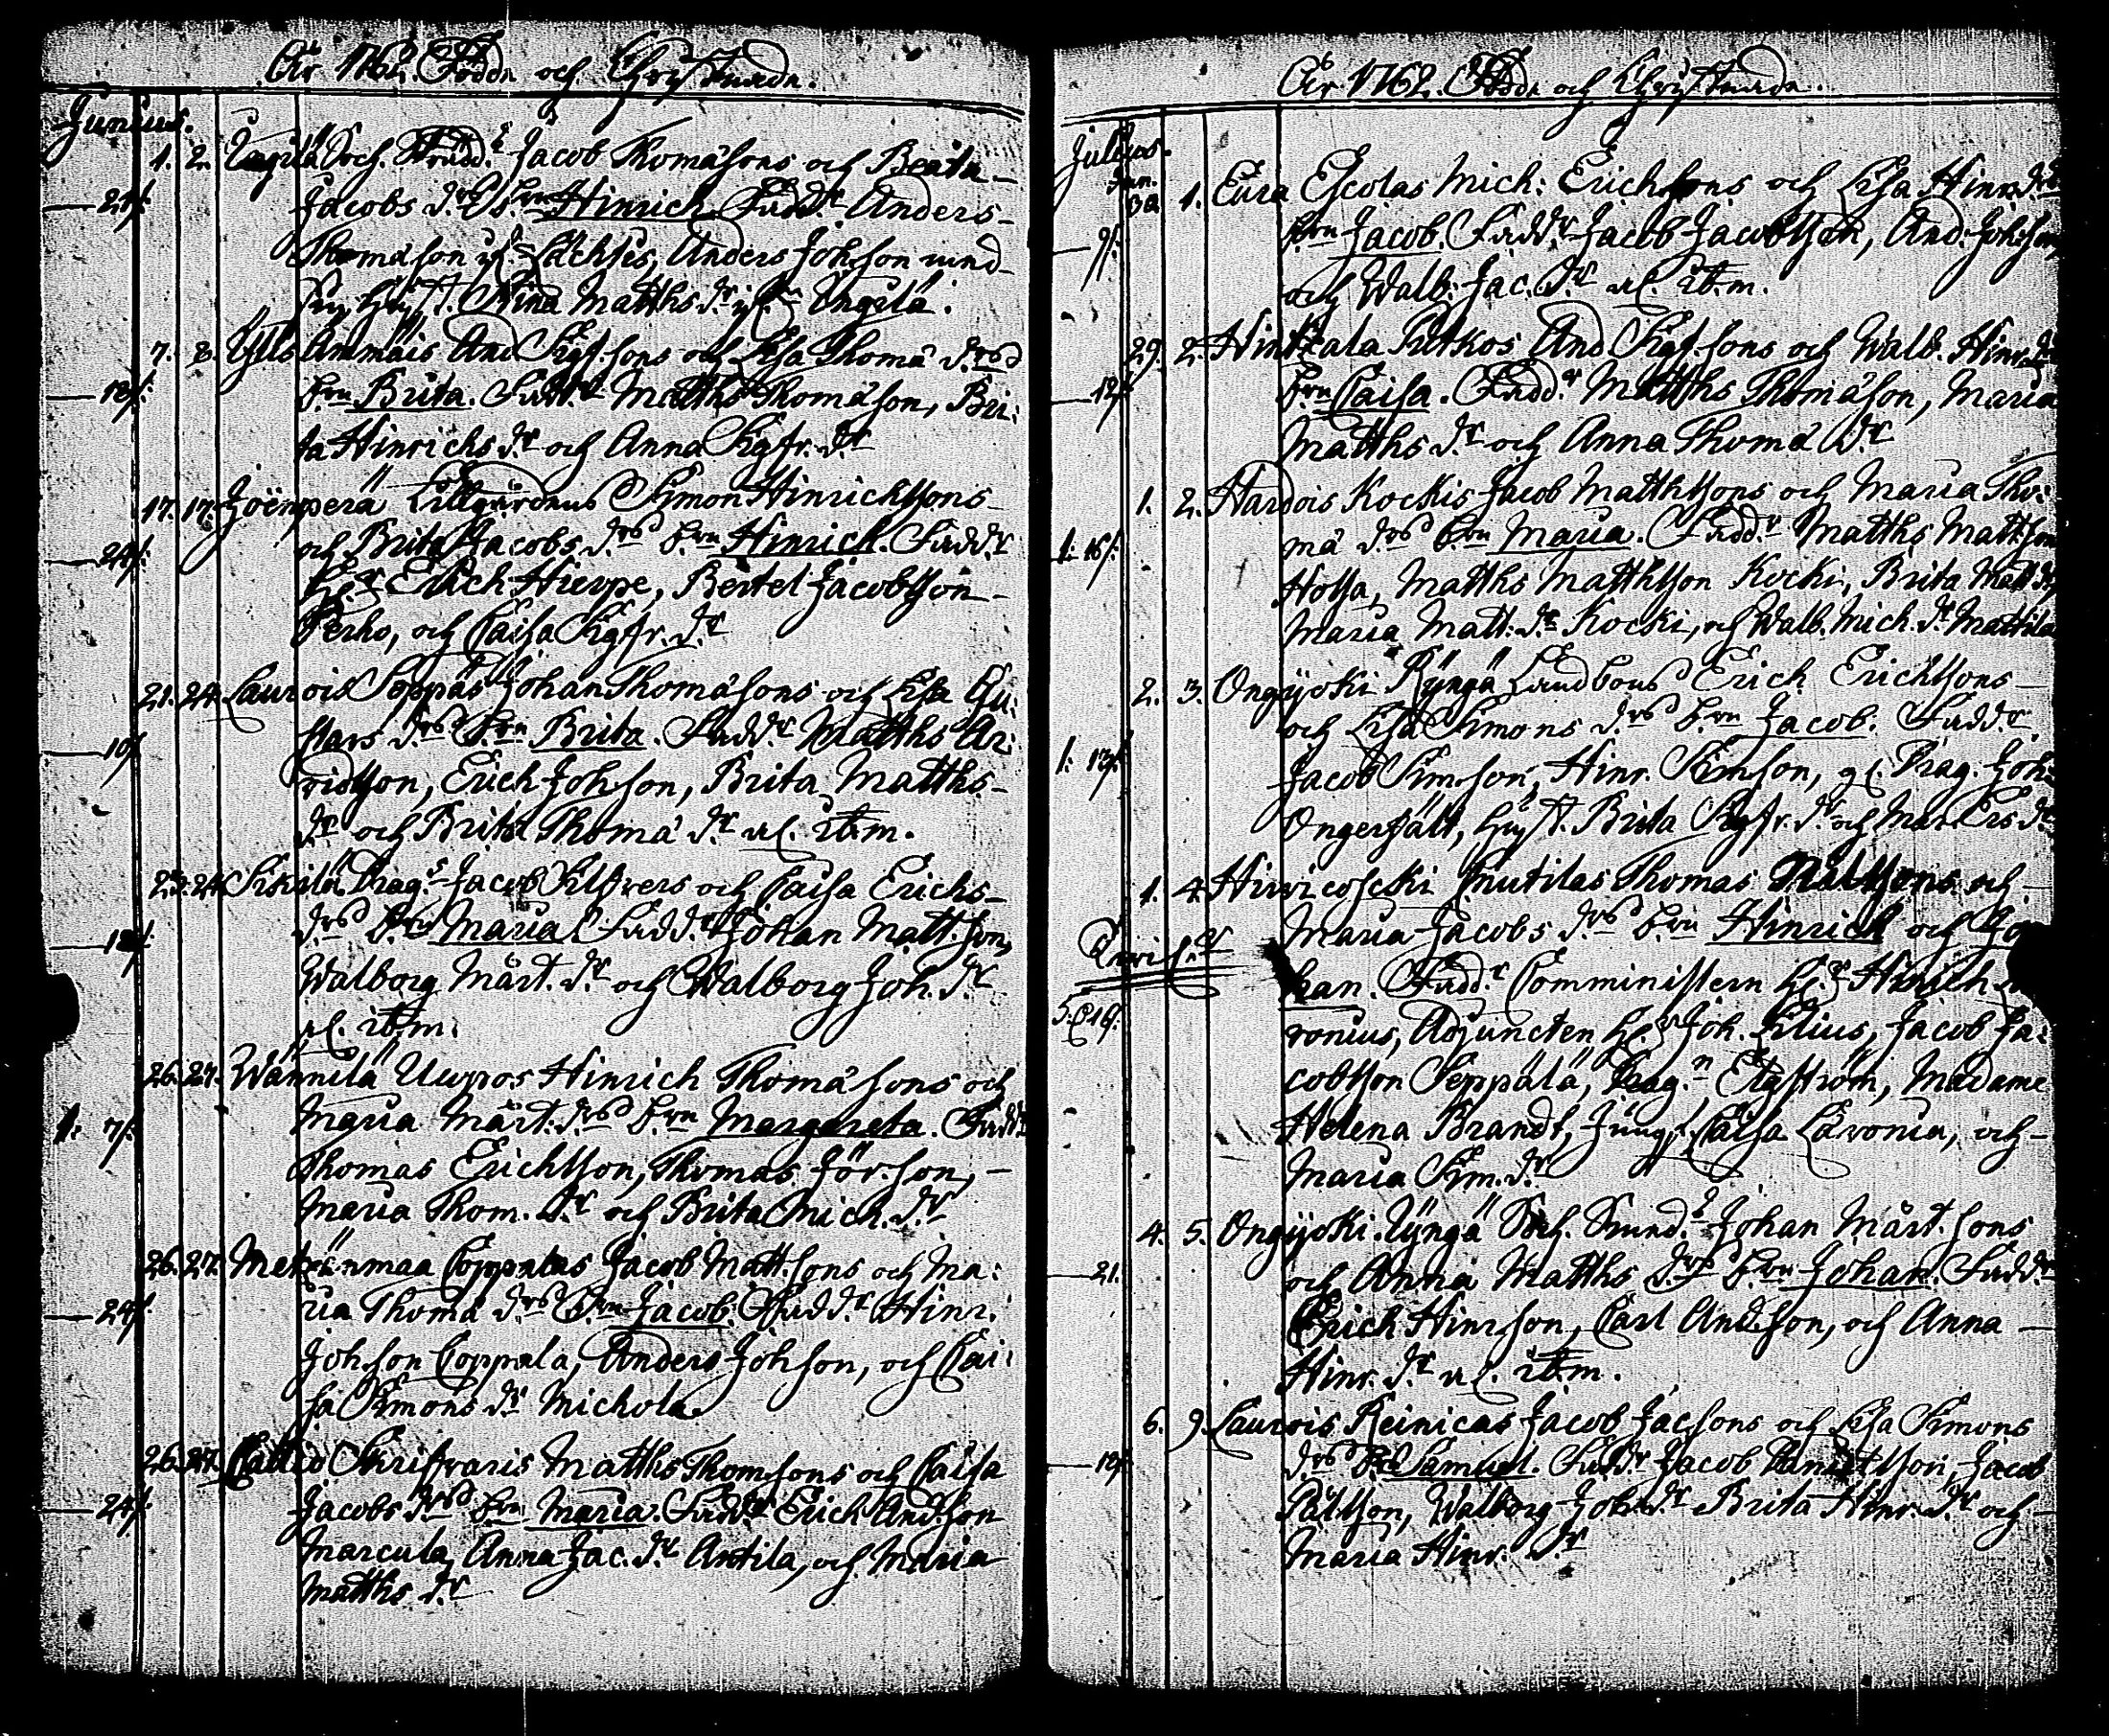 År 1762. Födde och Christnade.
Junius.
1. 2. Soch. Skrädd. Jacob Thomäsons och Beata
21/. Jacobs d:rs S:on Hinrich. Fadd:r Anders
Thomäson Anders Johsson
Hust. Stina Matths d:r Ungelä.
7. 8. Yllö Ammäis And. Sigf.sons och Lisa Thomä d:rs
18/. b:rn Brita. Fadd:r Matths Thomäson, Bri:
ta Hinrichs d:r och Anna Sigfr. d:r
17. 17. Joënperä Lillgårdens Simon Hinrichssons
24/. och Brita Jacobs d:rs b:rn Hinrich. Fadd:r
H:r Erich Hierpe, Bertel Jacobsson
Perho, och Caisa Sigfr. d:r
21. 24. Laurois Seppäs Johan Thomäsons och Lisa Gu:
10/. stavs d:rs b:rn Brita. Fadd:r Matths Ar:
vidsson, Erich Johsson, Brita Matths
d:r och Brita Thomä d:r ul. ib:m.
23. 24. Drag:s Jacob Silfvers och Caisa Erichs
18/. d:rs b:rn Maria. Fadd:r Johan Matt.son,
Walborg Mårt. d:r och Walborg Joh. d:r
ul. ib:m.
26. 27. Wännilä Uuppos Hinrich Thomäsons och
1: 7/: Maria Mårt. d:rs b:rn Margareta. Fadd:r
Thomas Erichsson, Thomas Jör.son,
Maria Thom. d:r och Brita Mich. d:r
26. 27. Metzänmaa Coppalas Jacob Matt.sons och Ma:
24/. ria Thomä d:rs b:rn Jacob. Fadd:r Hinr.
Johsson Coppala, Anders Johsson, och Cai:
sa Simons d:r Michola.
26. 27. Callio Skrifvaris Matths Thomsons och Caisa
24/. Jacobs d:rs b:rn Maria. Fadd:r Erich And.son
Marcula, Anna Jac. d:r Antila, och Maria
Matths d:r
År 1762. Födde och Christnade.
Julius.
Jun.
30. 1. Eura Escolas Mich: Erichssons och Lisa Hinr. d:rs
9/. b:rn Jacob. Fadd:r Jacob Jacobsson, And. Johsson,
och Walb. Jac. d:r ul. ib:m.
29. 2. Putkos And. Sigf.sons och Walb. Hinr. d:rs
12/. b:rn Caisa. Fadd:r Matths Thomäson, Maria
Matths d:r och Anna Thomä d:r
1. 2. Haroois Kockis Jacob Matthssons och Maria Tho:
1: 16/: mä d:rs b:rn Maria. Fadd:r Matths Matt.son
Matths Matthsson Kocki, Brita Matt. d:r
Maria Matt. d:r Kocki, och Walb. Mich. d:r Mattila
2. 3. Ongijoki Ryngä Landbons Erich Erichssons
och Lisa Simons d:rs b:rn Jacob. Fadd:r
1: 13/: Jacob Simsson, Hinr. Simson, gl. Drag. Joh.
Ongerfält, hust. Brita Sigfr. d:r och Mar. Ers d:r
1. 4. Hirvicoscki Knutilas Thomas Matssons och
Maria Jacobs d:rs b:rn Hinrich och Jo
han. Fadd:r Comministern H:r Hinrich
5: 16/: ronius, Adjuncten H:r Joh. Kilius, Jacob Ja:
cobsson Seppälä, Drag:n Elgström, Madame
Helena Brandt, Jungf. Caisa Lavonia, och
Maria Sim. d:r
4. 5. Ongijoki Ryngä Johan Mårt.sons
21. och Anna Matths d:rs b:rn Johan. Fadd:r
Erich Hinrson, Carl And.son, och Anna
Hinr. d:r ul. ib:m.
6. 9. Laurois Reinicas Jacob Jacsons och Lisa Simons
18/. d:rs b:rn Samuel. Fadd:r Jacob Jacob
Pålsson, Walborg Joh. d:r Brita Hinr. d:r och
Maria Hinr. d:r